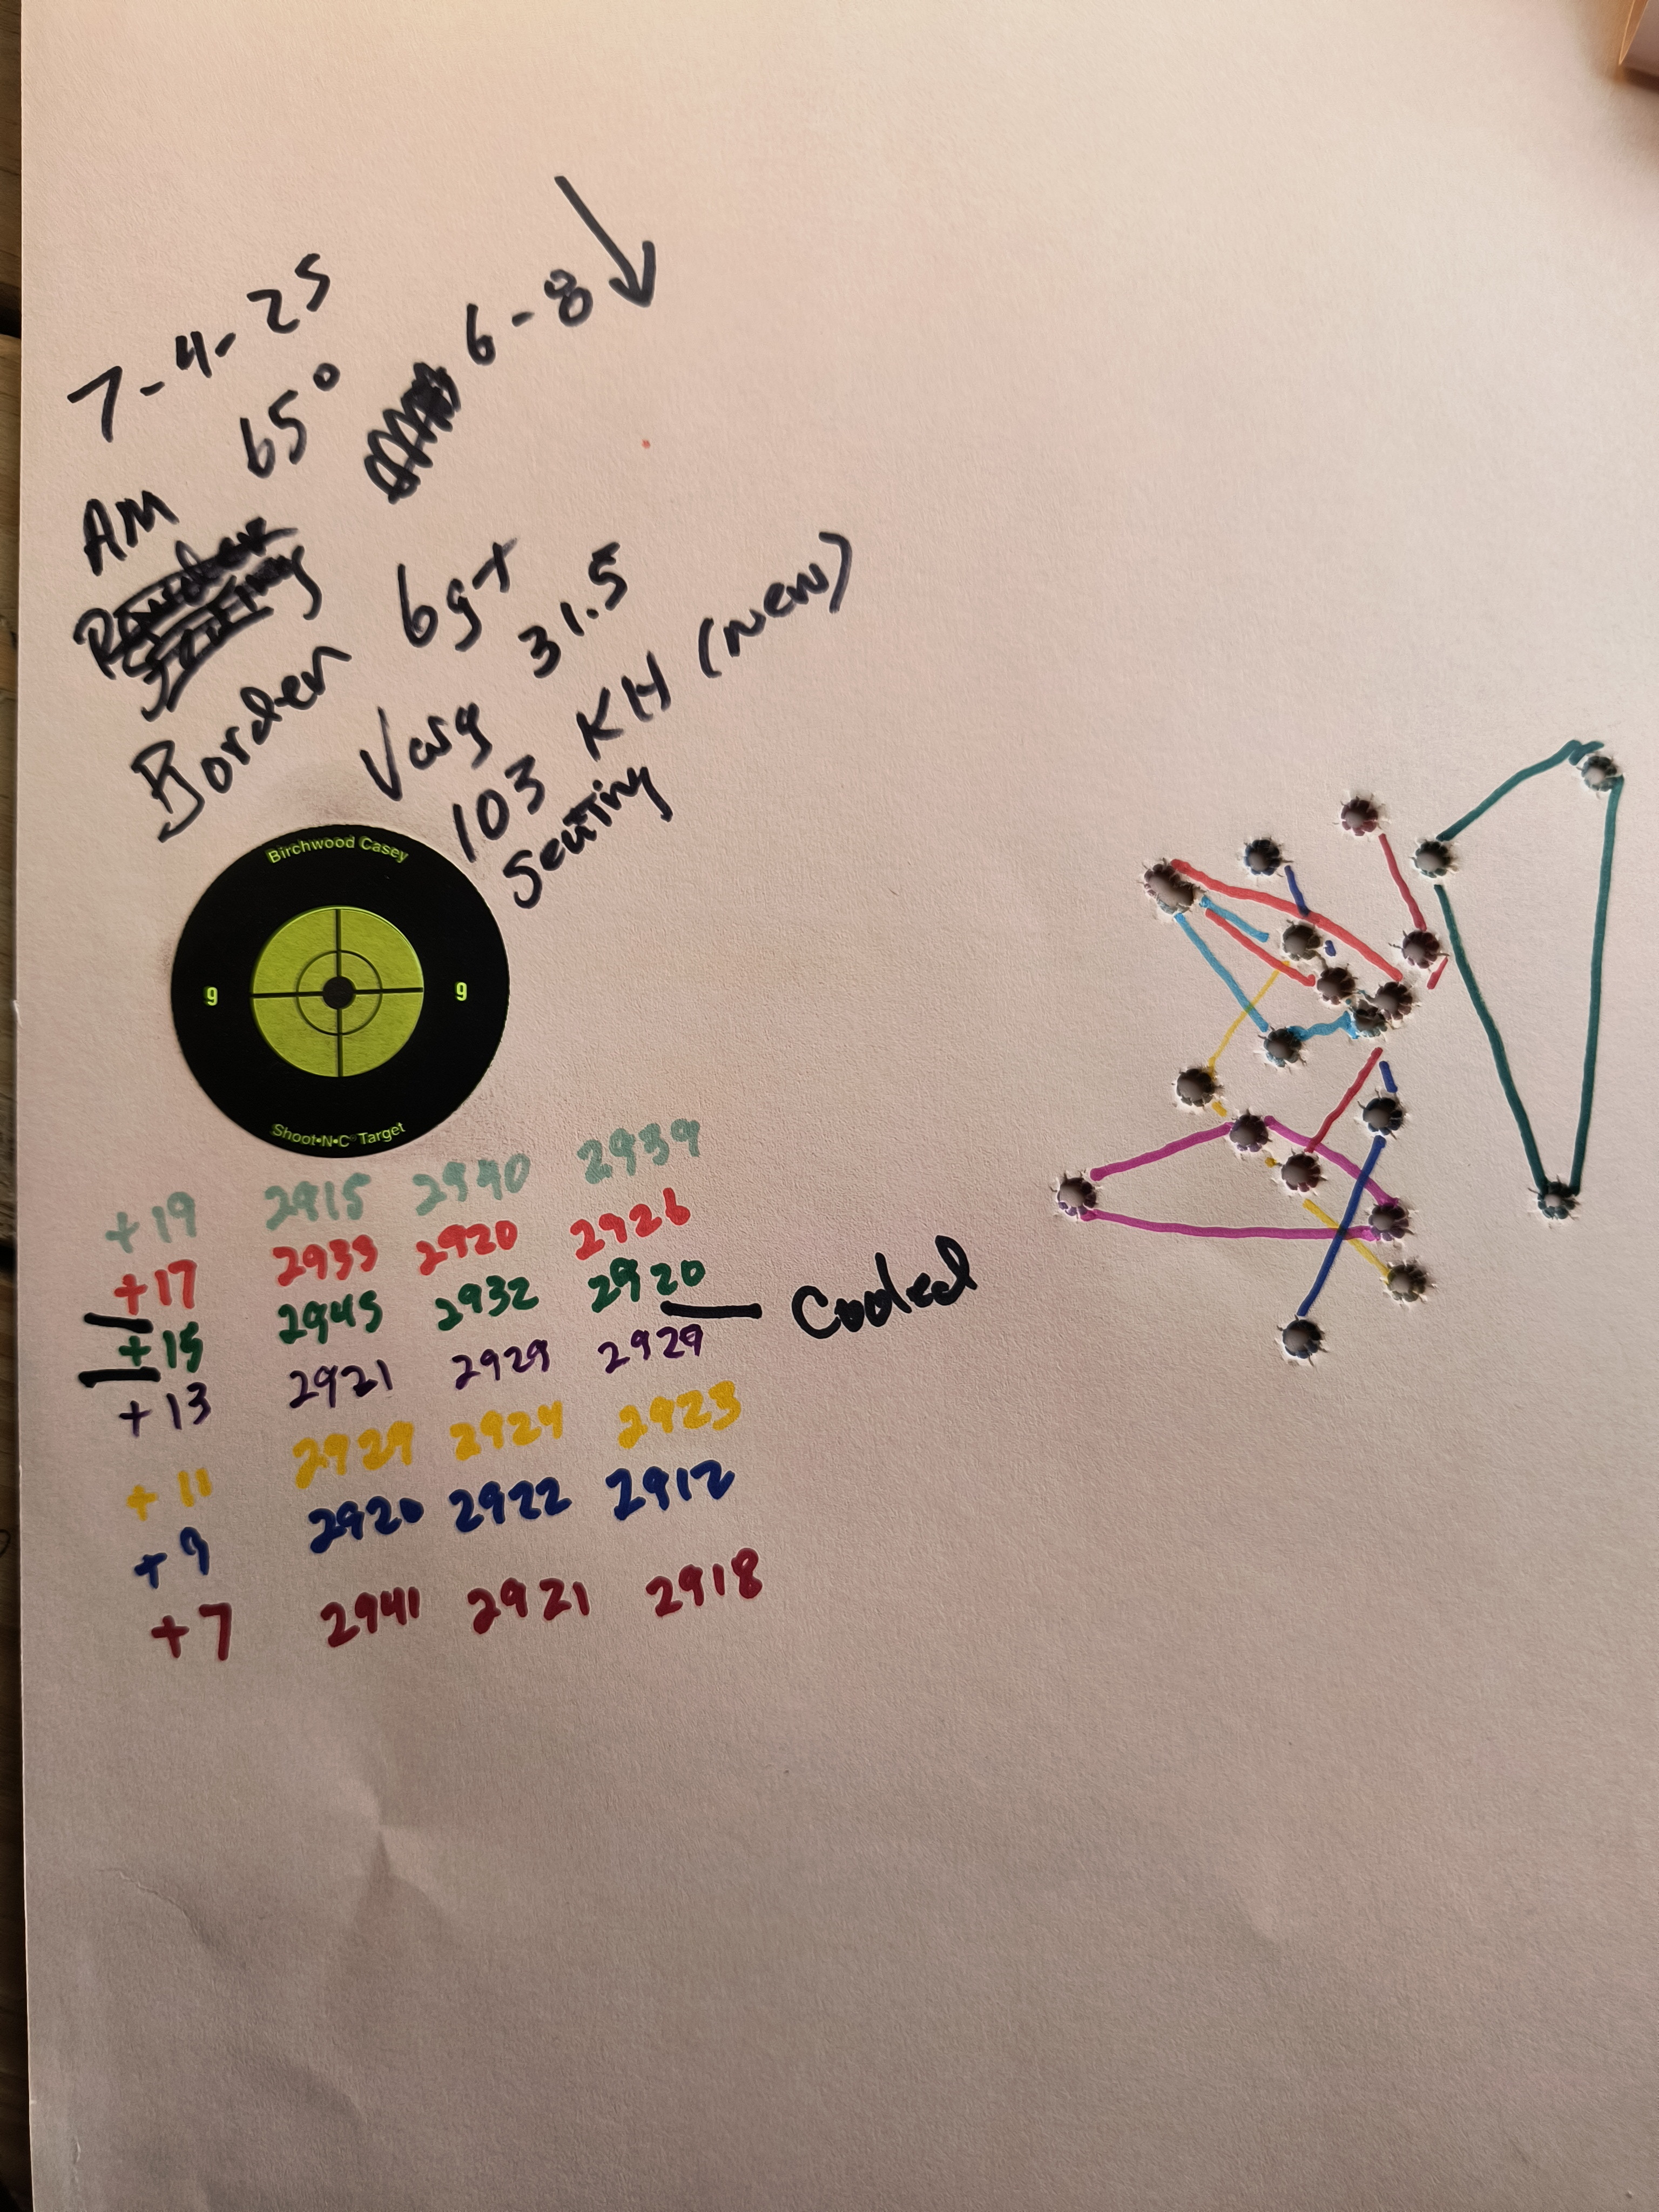 7-4-25
AM 65° 6-8
Border 6gt
Varg 31.5
103 KH (new)
Seating
Birchwood Casey
9 9
Shoot•N•C Target
+19 2915 2940 2939
+17 2933 2920 2926
+15 2945 2932 2920
Cooled
+13 2921 2929 2929
+11 2929 2924 2923
+9 2920 2922 2912
+7 2941 2921 2918